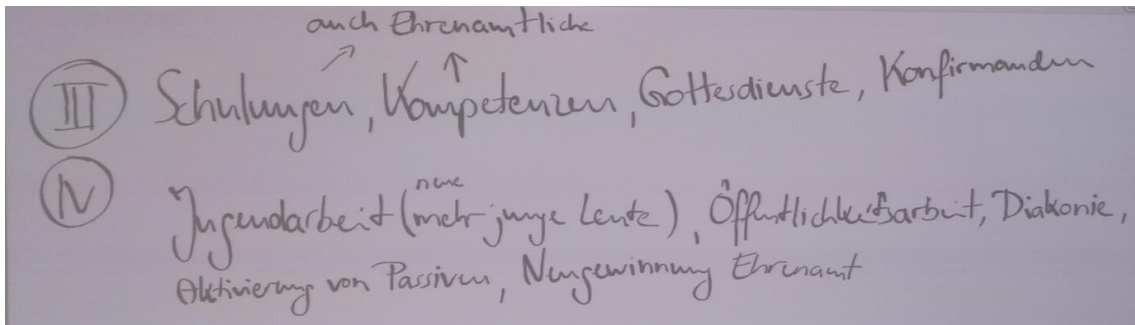 auch Ehrenamtliche
III Schulungen, Kompetenzen, Gottesdienste, Konfirmanden
neue
IV Jugendarbeit (mehr junge Leute), Öffentlichkeitsarbeit, Diakonie,
Aktivierung von Passiven, Neugewinnung Ehrenamt